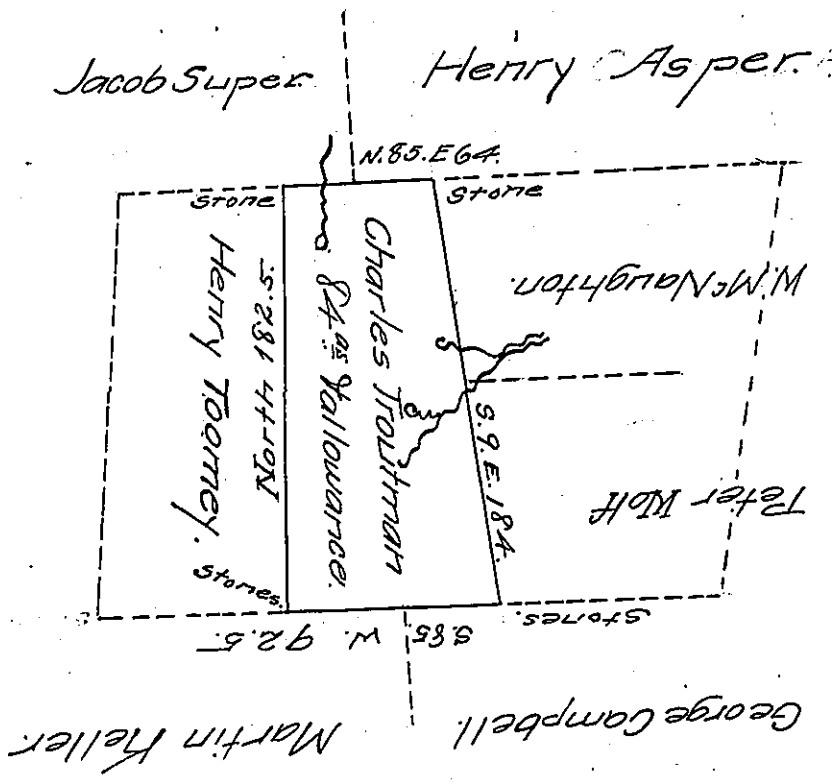 Jacob Super.
Henry Asper.
N.85.E 64.
Stone
Stone
Henry Toomey.
North 182.5.
Charles Troutman
84 as & allowance.
W. McNaughton.
S.9.E.184.
Peter Wolf
Stones.
Stones.
S.85 W. 92.5.
Martin Keller.
George Campbell.